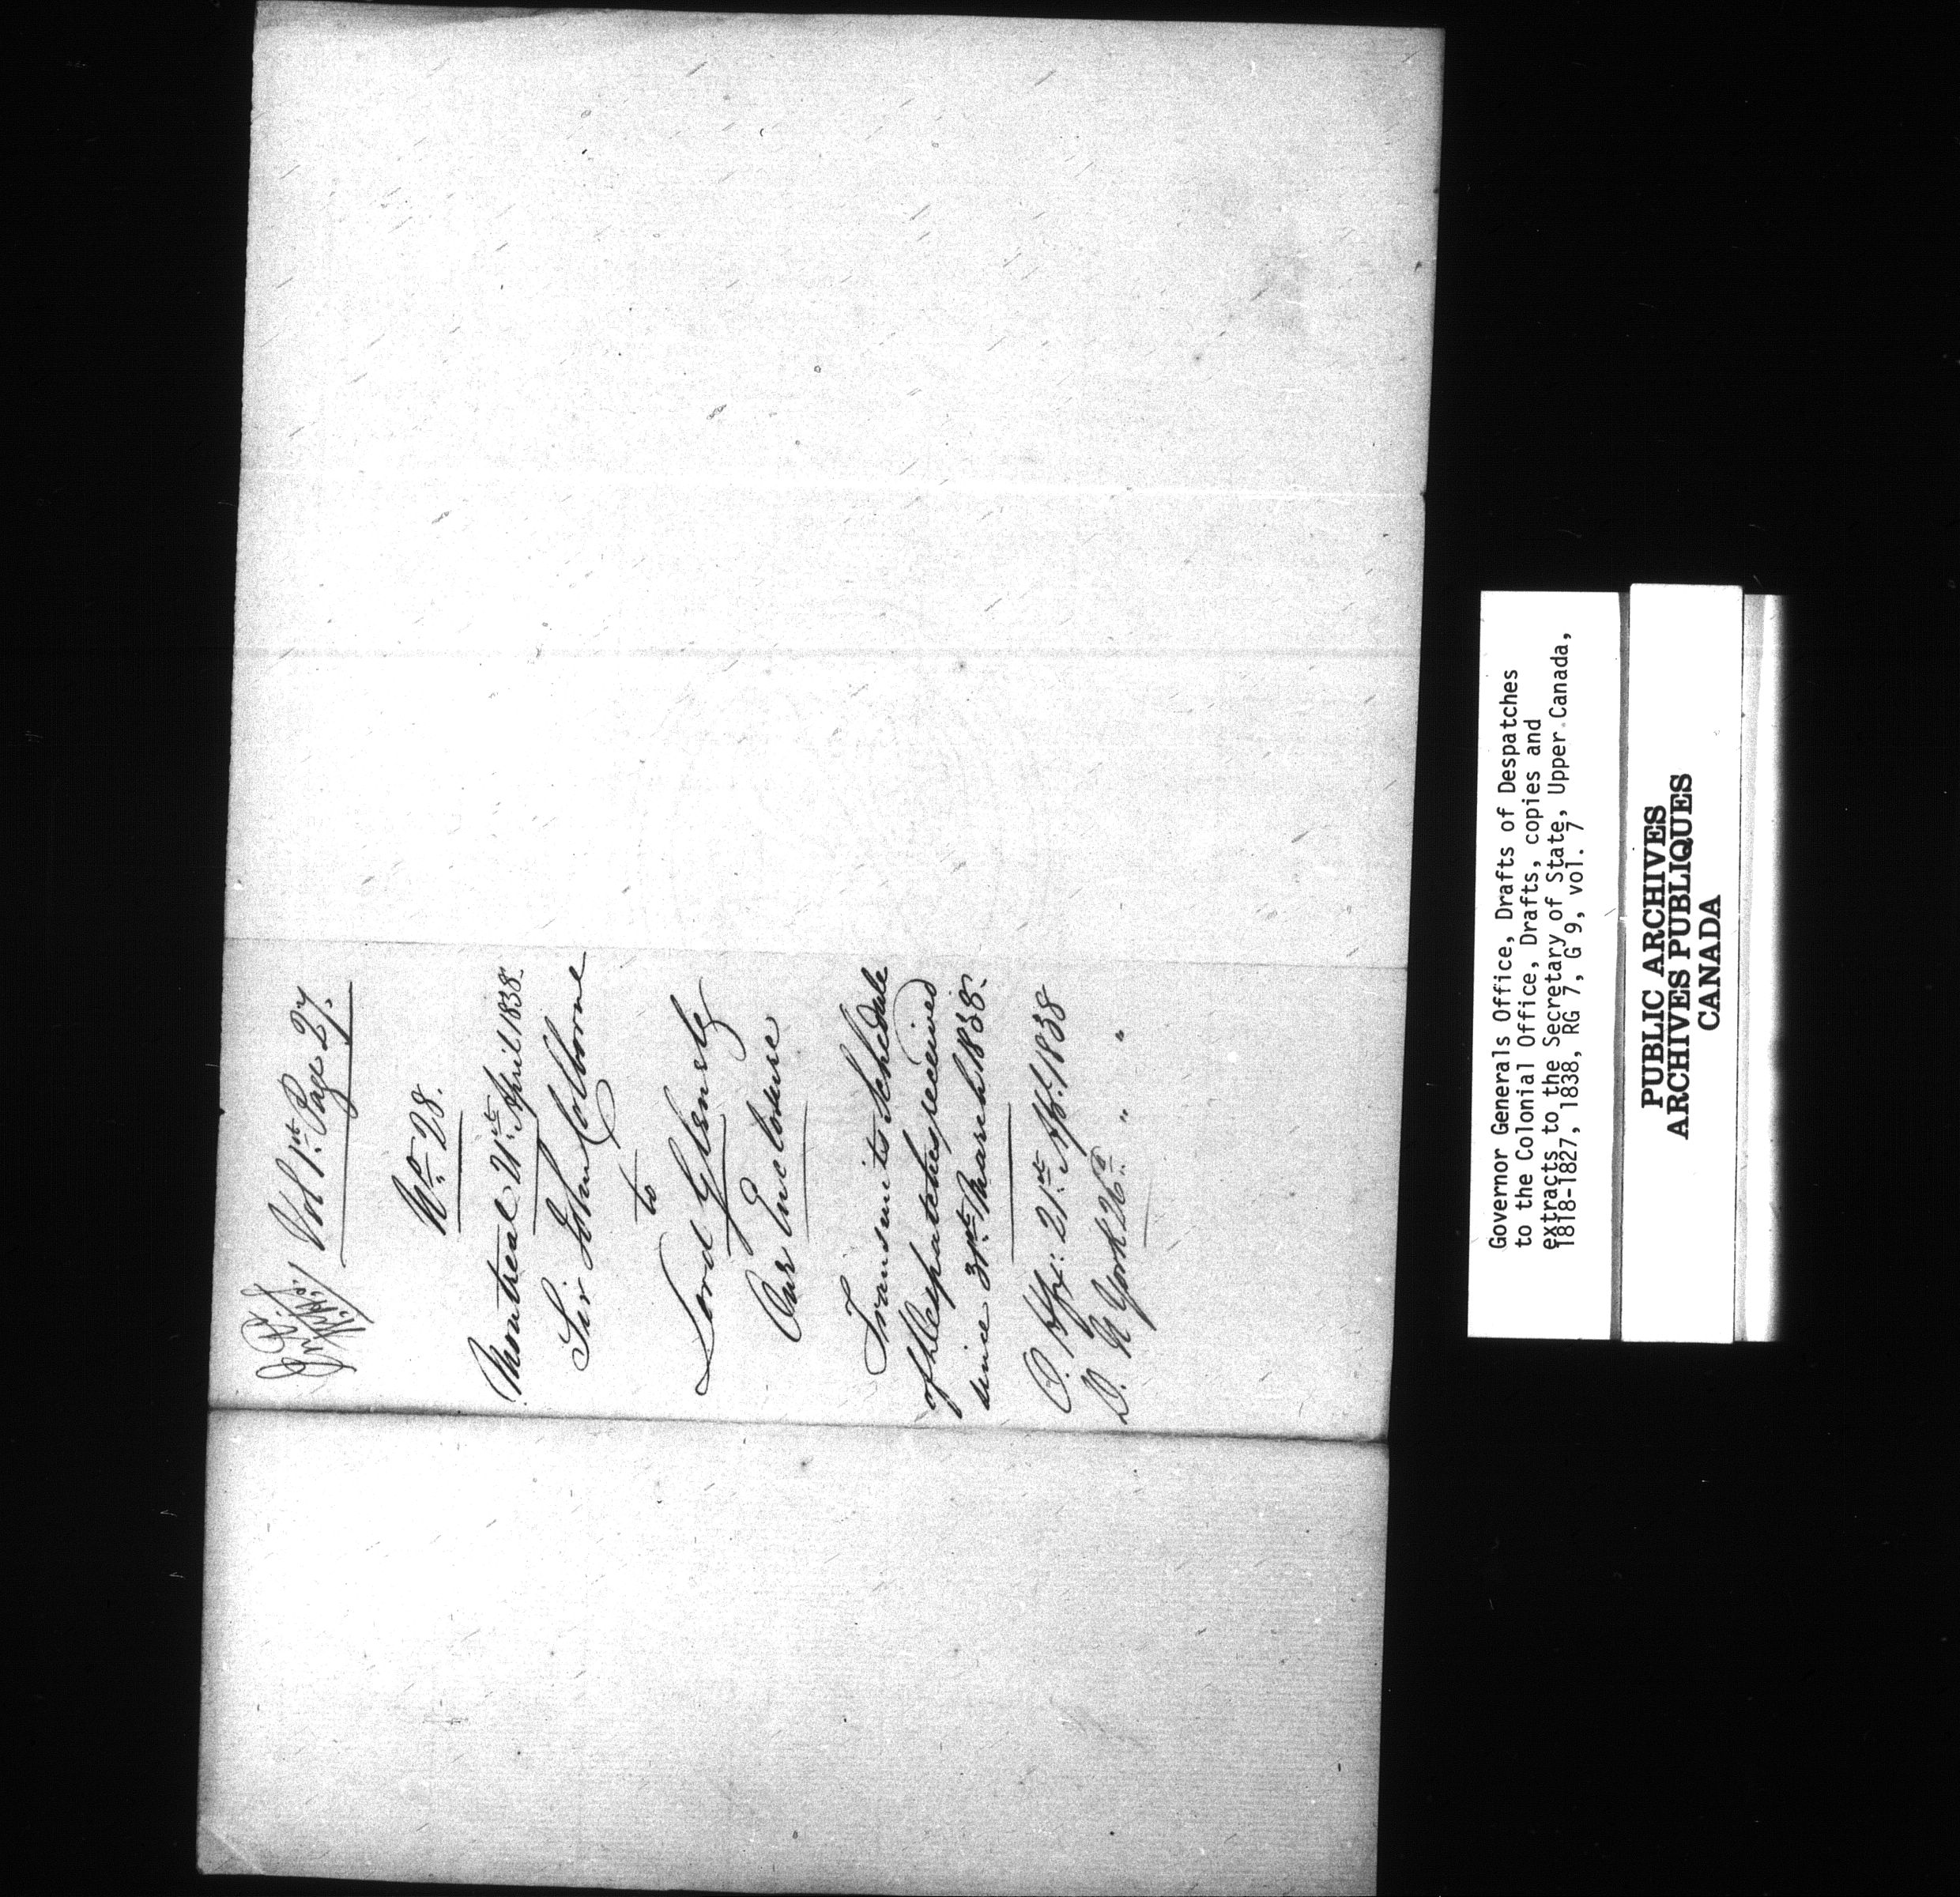 Vol 1st. Page 27.
No. 28.
Montreal 21st. April 1838.
Sir John Colborne
to
Lord Glenelg
One Enclosure
Transmits Schedule
of Despatches received
since 31st. March 1838.
O. Off: 21st. Apl. 1838
D. N York 26. " "
Governor Generals Office, Drafts of Despatches
to the Colonial Office, Drafts, copies and
extracts to the Secretary of State, Upper Canada,
1818-1827, 1838, RG 7, G 9, vol. 7
PUBLIC ARCHIVES
ARCHIVES PUBLIQUES
CANADA